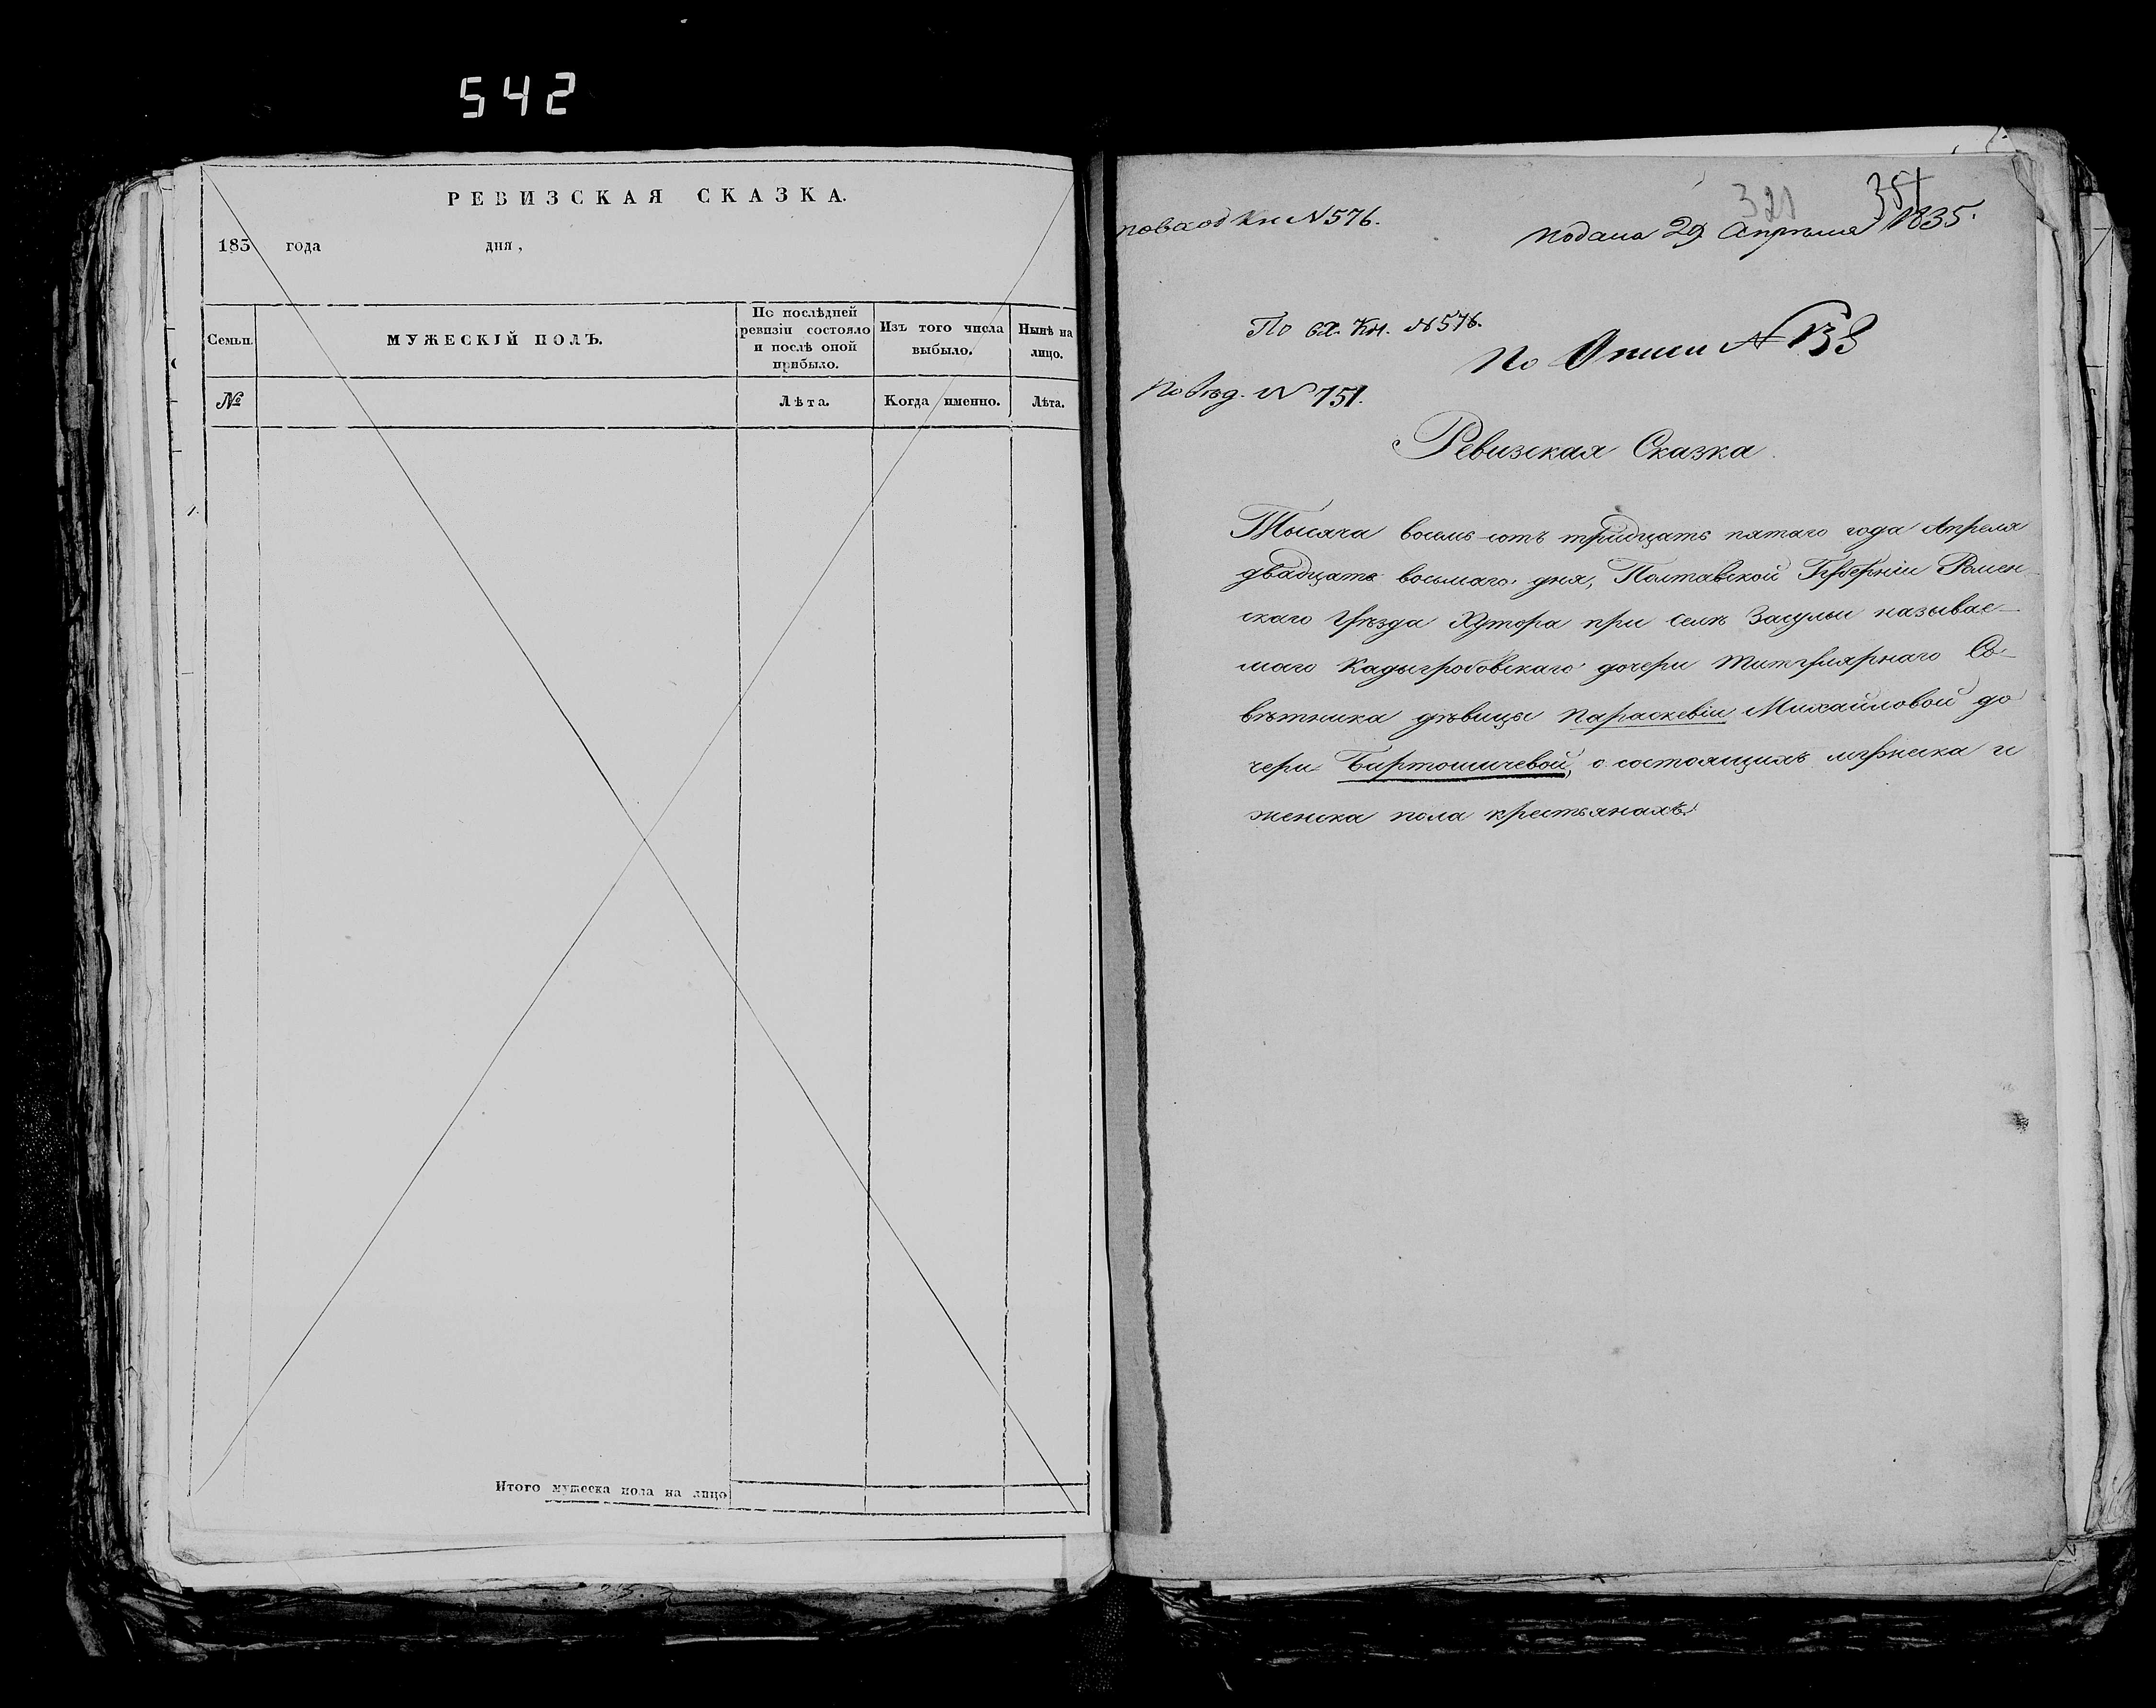 542
РЕВИЗСКАЯ СКАЗКА.
183 года дня,
Семьи.
МУЖЕСКІЙ ПОЛЪ.
По послѣдней ревизіи состояло и послѣ оной прибыло.
Изъ того числа выбыло.
Нынѣ на лицо.
№
Лѣта.
Когда именно.
Лѣта.
Итого мужеска пола на лицо
321
351
Кн N 576.
подана 29 Апрѣля 1835.
По вх. Кн. N 576.
По Описи N 138
По вѣд. N 751.
Ревизская Сказка.
Тысяча восемь сотъ тридцать пятаго года Апреля
двадцать восьмаго дня, Полтавской Губерніи Ромен-
скаго уѣзда Хутора при селѣ Засульи называе-
маго Кадыгробовскаго дочери титулярнаго Со-
вѣтника дѣвицы Параскевіи Михайловой до
чери Бартошичевой, о состоящихъ мужеска и
женска пола крестьянахъ.